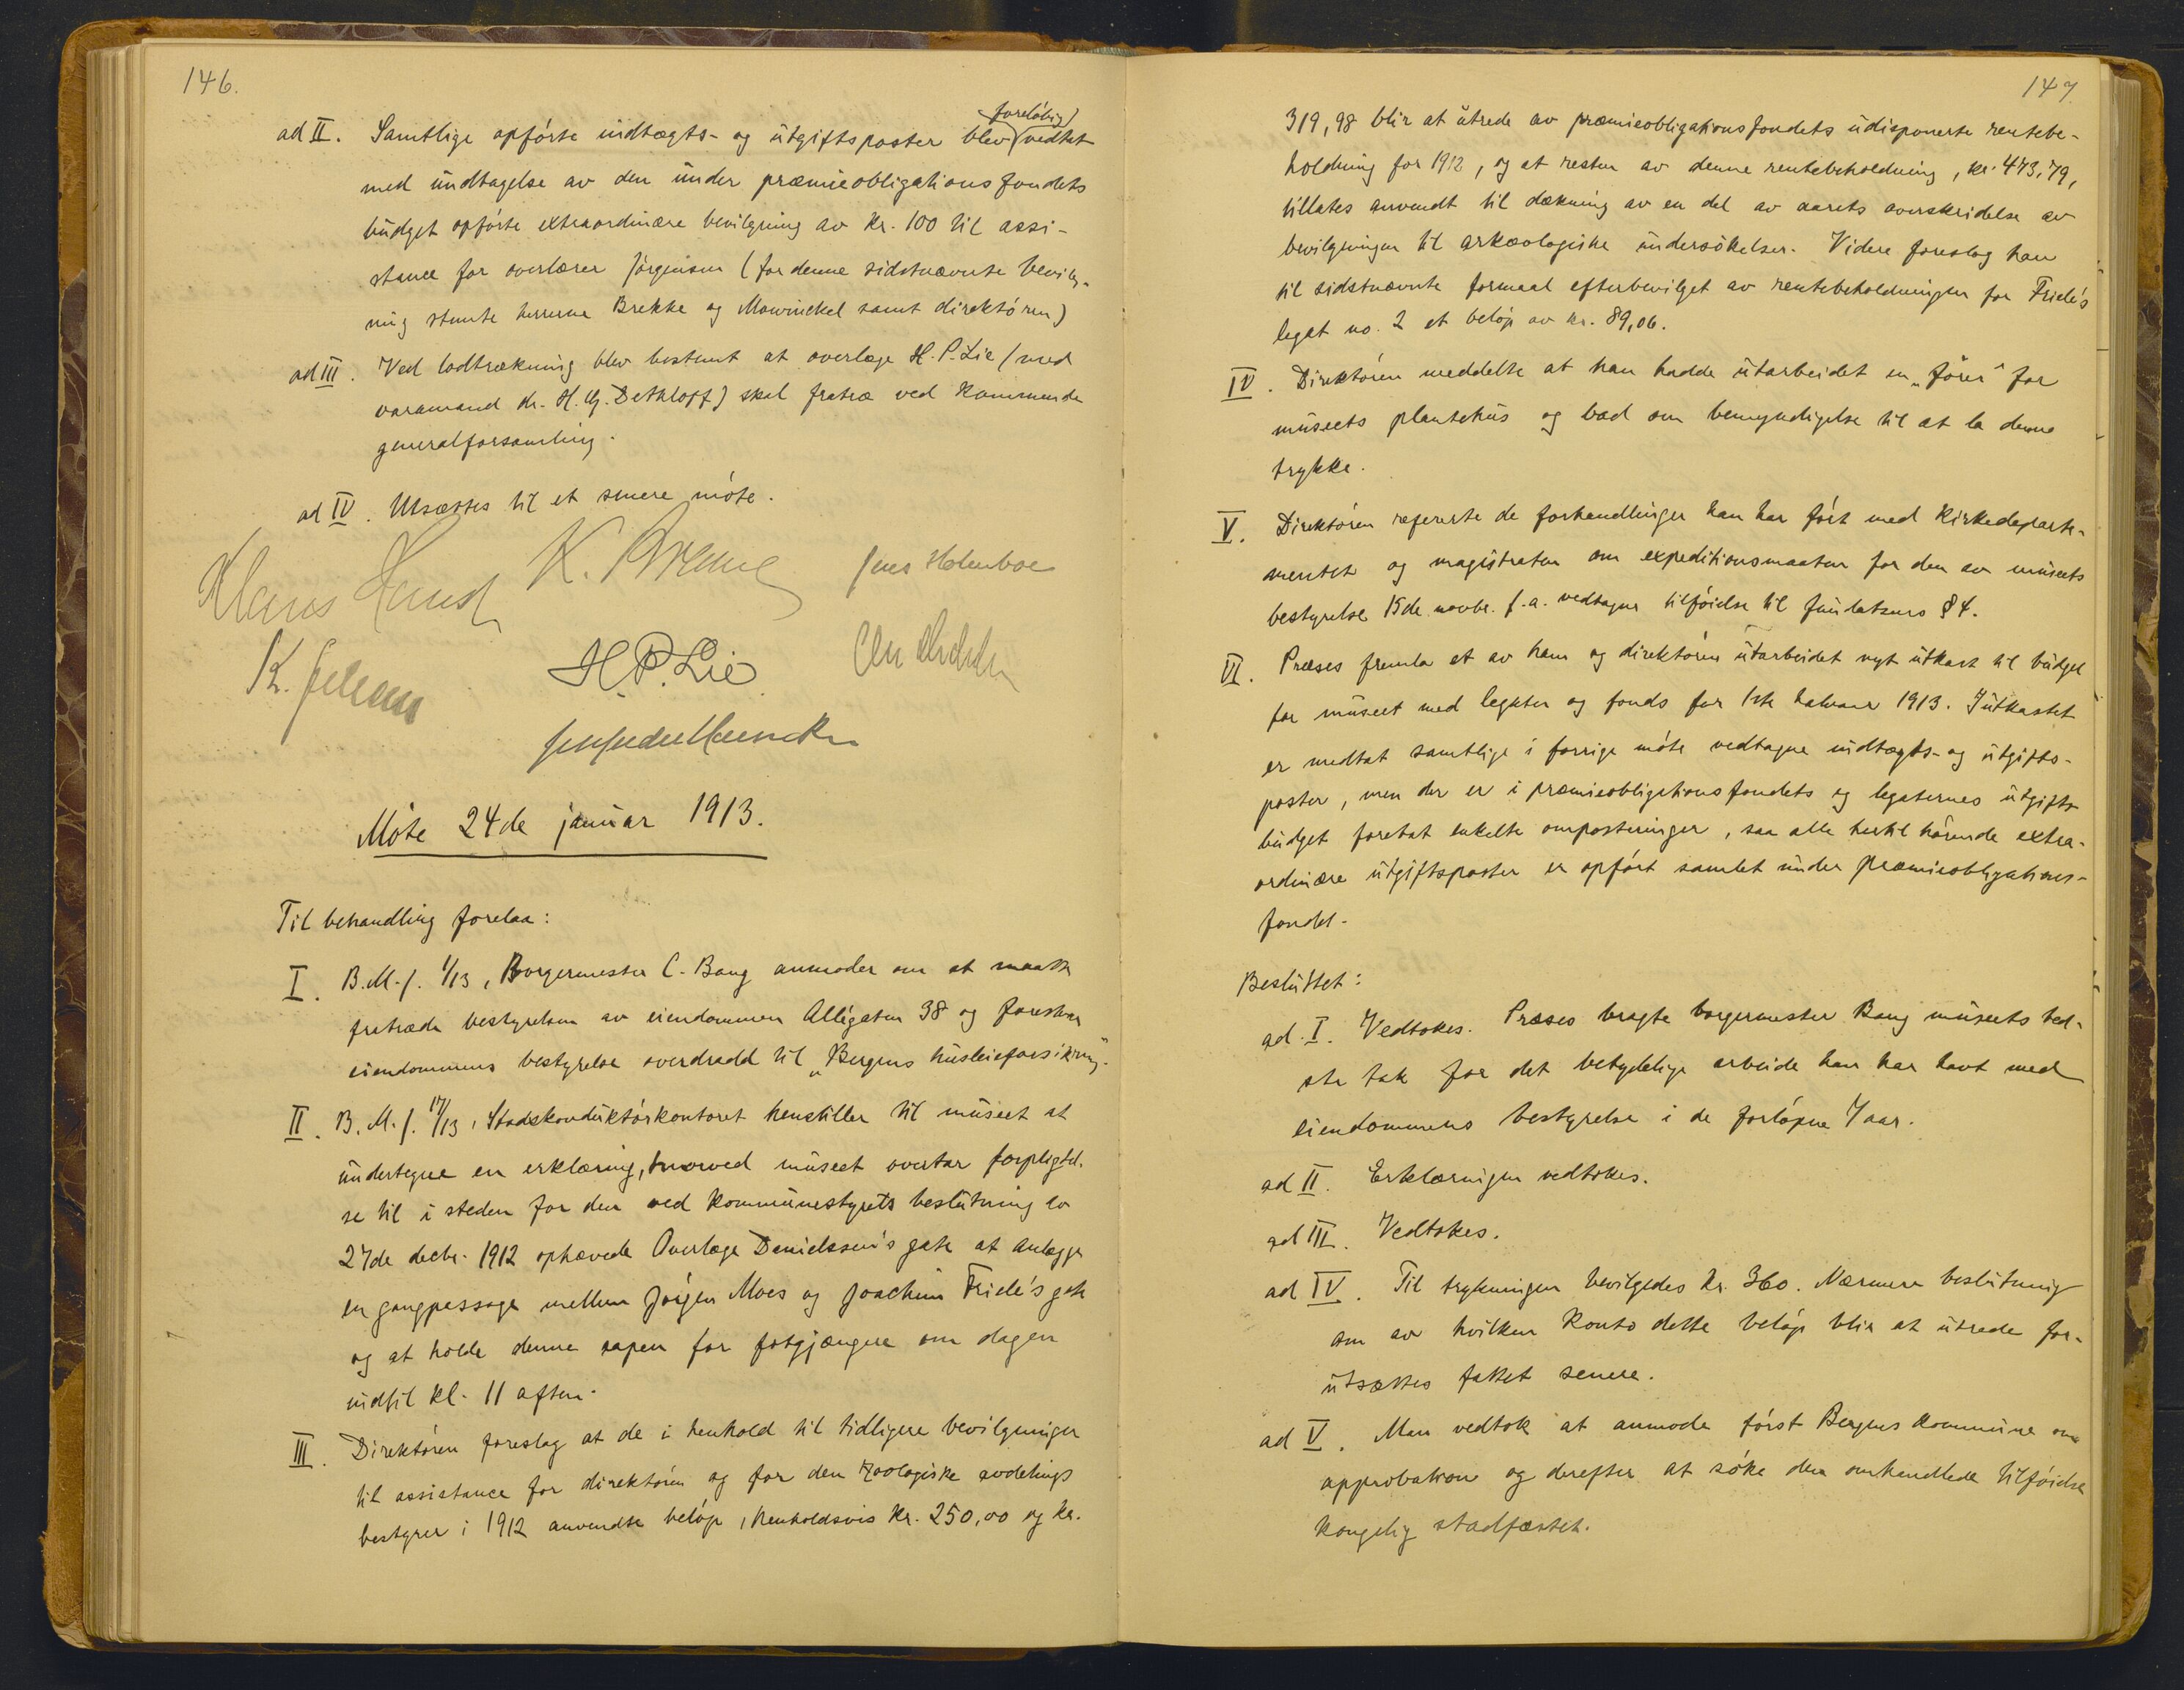 146.
ad II. Samtlige opførte indtægts- og utgiftsposter blev (foreløbig) vedtat
med undtagelse av den under præmieobligationsfondets
budget opførte extraordinære bevilgning av kr. 100 til assi-
stance for overlærer Jørgensen (for denne sidstnævnte bevilg-
ning stemte herrerne Brekke og Mowinckel samt direktøren)
ad III. Ved lodtrækning blev bestemt at overlæge H. P. Lie (med
varamand dr. H. G. Dethloff) skal fratræ ved kommende
generalforsamling.
ad IV. Utsættes til et senere møte.
Klaus Hanssen K. Brekke Jens Holmboe
H. P. Lie
Møte 24de januar 1913.
Til behandling forelaa:
I. B.M.J. 1/13, Borgermester C. Bang anmoder om at maatte
fratræde bestyrelsen av eiendommen Allégaten 38 og foreslaar
eiendommens bestyrelse overdradd til „Bergens husleieforsikring".
II. B.M.J. 17/13, Stadskonduktørkontoret henstiller til museet at
undertegne en erklæring, hvorved museet overtar forpligtel-
se til i steden for den ved kommunestyrets beslutning av
27de decbr. 1912 ophævede Overlæge Danielssen's gate at anlægge
en gangpassage mellem Jørgen Moes og Joachim Friele's gate
og at holde denne aapen for fotgjængere om dagen
indtil kl. 11 aften.
III. Direktøren foreslog at de i henhold til tidligere bevilgninger
til assistance for direktøren og for den zoologiske avdelings
bestyrer i 1912 anvendte beløp, henholdsvis kr. 250,00 og kr.
147
319,98 blir at utrede av præmieobligationsfondets udisponerte rentebe-
holdning for 1912, og at resten av denne rentebeholdning, kr. 473,79,
tillates anvendt til dækning av en del av aarets overskridelse av
bevilgningen til arkæologiske undersøkelser. Videre foreslog han
til sidstnævnte formaal efterbevilget av rentebeholdningen for Friele's
legat no. 2 et beløp av kr. 89,06.
IV. Direktøren meddelte at han hadde utarbeidet en „fører" for
museets plantehus og bad om bemyndigelse til at la denne
trykke.
V. Direktøren refererte de forhandlinger han har ført med Kirkedeparte-
mentet og magistraten om expeditionsmaaten for den av museets
bestyrelse 15de novbr. f.a. vedtagne tilføielse til fundatsens § 4.
VI. Præses fremla et av ham og direktøren utarbeidet nyt utkast til budget
for museet med legater og fonds for 1ste halvaar 1913. I utkastet
er medtat samtlige i forrige møte vedtagne indtægts- og utgifts-
poster, men der er i præmieobligationsfondets og legaternes utgifts-
budget foretat enkelte omposteringer, saa alle hertil hørende extra-
ordinære utgiftsposter er opført samlet under præmieobligations-
fondet.
Besluttet:
ad. I. Vedtokes. Præses bragte borgermester Bang museets bed-
ste tak for det betydelige arbeide han har havt med
eiendommens bestyrelse i de forløpne 7 aar.
ad II. Erklæringen vedtokes.
ad III. Vedtokes.
ad IV. Til trykningen bevilgedes kr. 360. Nærmere beslutning
om av hvilken konto dette beløp blir at utrede for-
utsættes fattet senere.
ad V. Man vedtok at anmode først Bergens kommune om
approbation og derefter at søke den omhandlede tilføielse
kongelig stadfæstet.